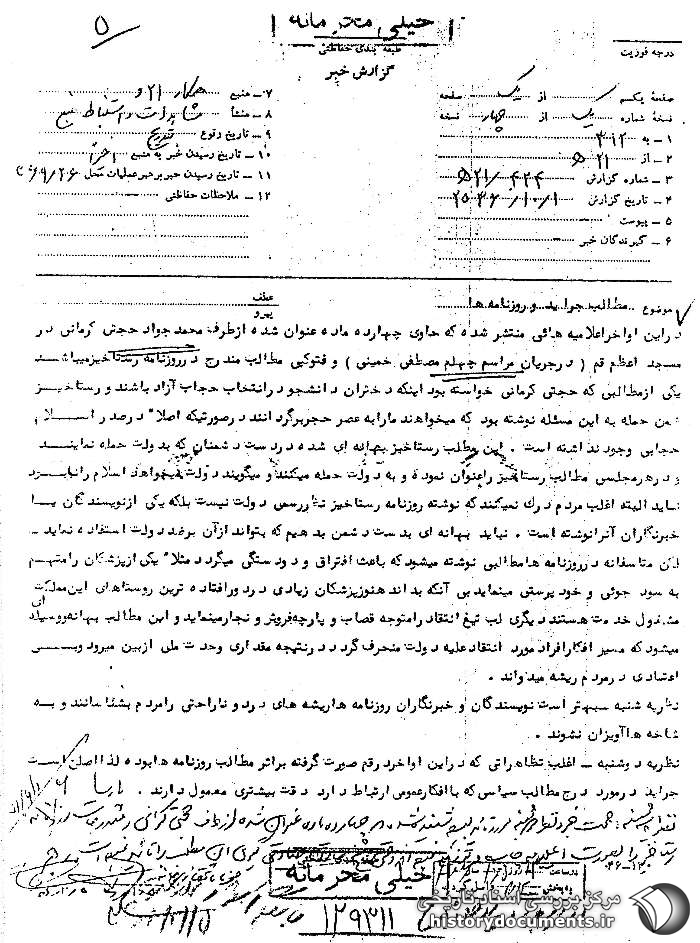 ۵
خیلی محرمانه
طبقه بندی حفاظتی
گزارش خبر
درجه فوریت
صفحه یکم از یک صفحه
نسخه شماره یک از چهار نسخه
۱ – به ۳۱۲
۲ – از ۲۱ ه
۳ – شماره گزارش ۲۱/۴۲۴ ه
۴ – تاریخ گزارش ۲۵۳۶/۱۰/۱
۵ – پیوست
۶ – گیرندگان خبر
۷ – منبع همکار ۲۱ و
۸ – منشأ مشاهدات و استنباط منبع
۹ – تاریخ وقوع
۱۰ – تاریخ رسیدن خبر به منبع اخیراً
۱۱ – تاریخ رسیدن خبر برهبر عملیات محل ۳۶/۹/۲۶
۱۲ – ملاحظات حفاظتی
موضوع مطالب جراید و روزنامه ها
عطف
پیرو
در این اواخر اعلامیه هائی منتشر شده که حاوی چهارده ماده عنوان شده از طرف محمد جواد حجتی کرمانی در
مسجد اعظم قم ( در جریان مراسم چهلم مصطفی خمینی ) و فتوکپی مطالب مندرج در روزنامه رستاخیز میباشد
یکی از مطالبی که حجتی کرمانی خواسته بود اینکه دختران دانشجو در انتخاب حجاب آزاد باشند و رستاخیز
ضمن حمله به این مسئله نوشته بود که میخواهند ما را به عصر حجر برگردانند در صورتیکه اصلا" در صدر اسلام
حجابی وجود نداشته است . این مطلب رستاخیز بهانه ای شده در دست دشمنان که بدولت حمله نمایند
و در هر مجلسی مطالب رستاخیز را عنوان نموده و به دولت حمله میکنند و میگویند دولت میخواهد اسلام را نابود
نماید البته اغلب مردم درک نمیکنند که نوشته روزنامه رستاخیز نظر رسمی دولت نیست بلکه یکی از نویسندگان یا
خبرنگاران آنرا نوشته است . نباید بهانه ای بدست دشمن بدهیم که بتواند از آن برضد دولت استفاده نماید
لکن متاسفانه در روزنامه ها مطالبی نوشته میشود که باعث افتراق و دودستگی میگردد مثلا" یکی از پزشکان را متهم
به سود جوئی و خود پرستی مینماید بی آنکه بداند هنوز پزشکان زیادی در دورافتاده ترین روستاهای این مملکت
مشغول خدمت هستند دیگری لب تیغ انتقاد را متوجه قصاب و پارچه فروش و نجار مینماید و این مطالب بهانه و وسیله ای
میشود که مسیر افکار افراد مورد انتقاد علیه دولت منحرف گردد در نتیجه مقداری وحدت ملی از بین میرود و بی
اعتمادی در مردم ریشه میدواند .
نظریه شنبه – بهتر است نویسندگان و خبرنگاران روزنامه ها ریشه های درد و ناراحتی را مردم بشناسانند و به
شاخه ها آویزان نشوند .
نظریه دوشنبه – اغلب تظاهراتی که در این اواخر در قم صورت گرفته براثر مطالب روزنامه ها بوده لذا اصلح است
جراید در مورد درج مطالب سیاسی که با افکار عمومی ارتباط دارد دقت بیشتری معمول دارند . پارسا
خیلی محرمانه
۱۲۹۳۱۱
مرکز بررسی اسناد تاریخی
historydocuments.ir